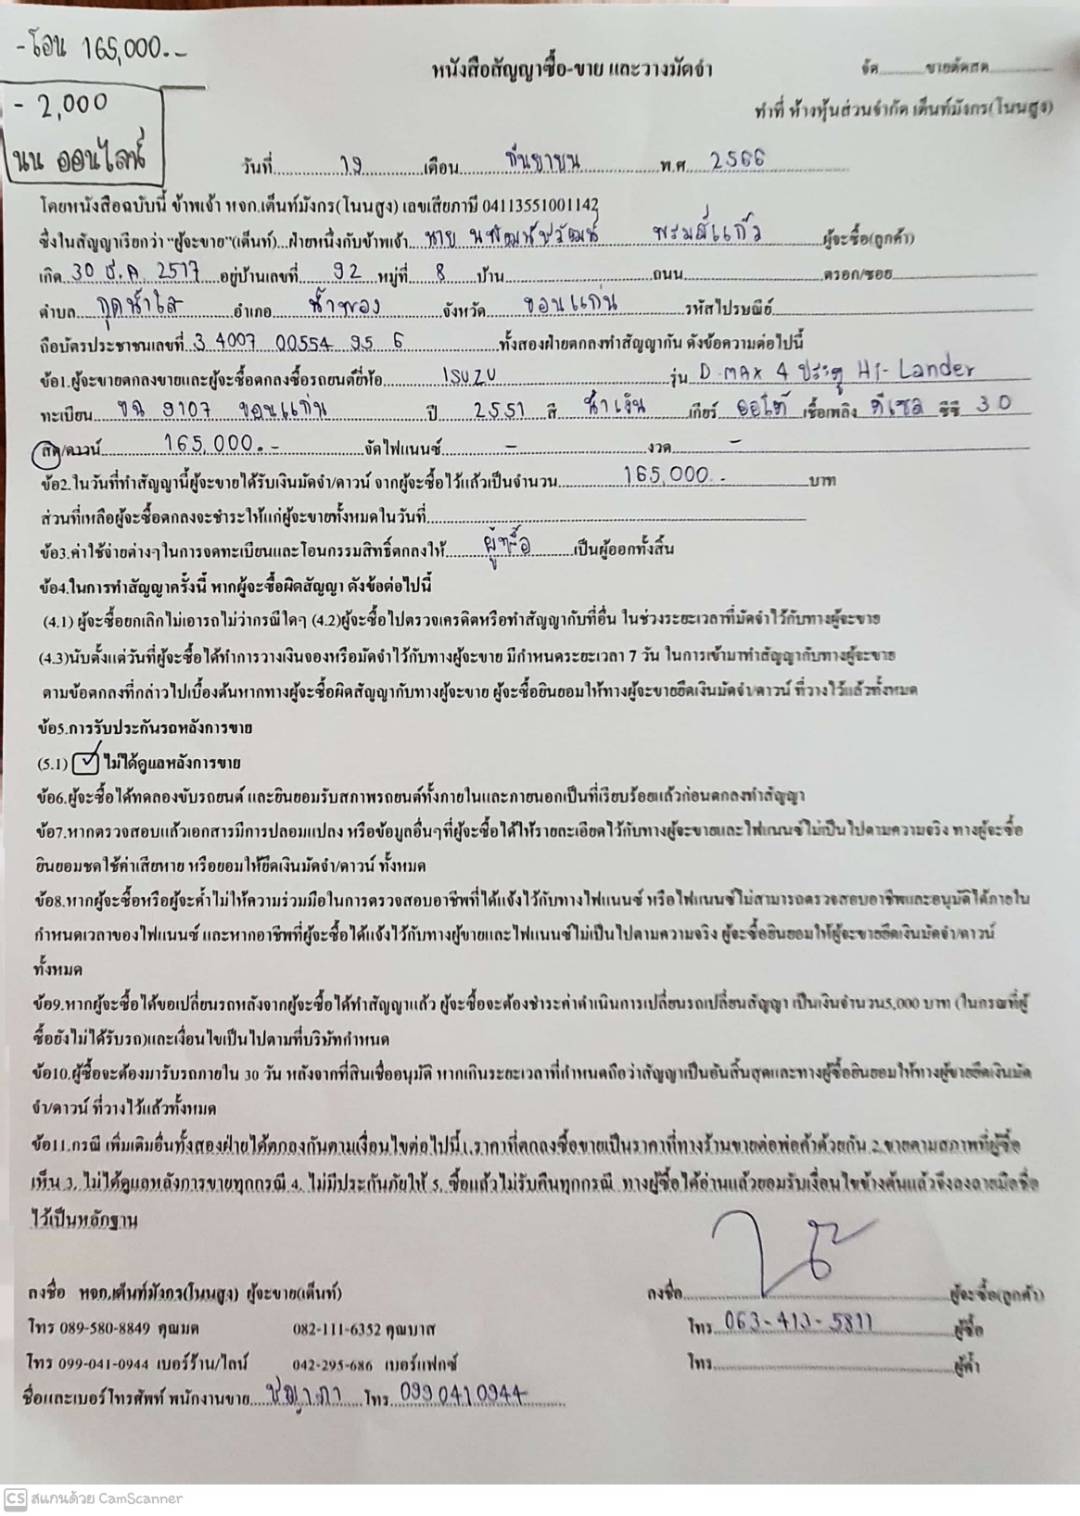 - โอน 165,000.-
- 2,000
นน ออนไลน์
หนังสือสัญญาซื้อ-ขาย และวางมัดจำ
จัด..........ขายตัดสด..............
ทำที่ ห้างหุ้นส่วนจำกัด เต็นท์มังกร(โนนสูง)
วันที่ 19 เดือน กันยายน พ.ศ. 2566
โดยหนังสือฉบับนี้ ข้าพเจ้า หจก.เต็นท์มังกร(โนนสูง) เลขเสียภาษี 04113551001142
ซึ่งในสัญญาเรียกว่า "ผู้จะขาย"(เต็นท์)...ฝ่ายหนึ่งกับข้าพเจ้า นาย ผู้จะซื้อ(ลูกค้า)
เกิด 30 2517 อยู่บ้านเลขที่ 92 หมู่ที่ 8 บ้าน ถนน ตรอก/ซอย
ตำบล กุดน้ำใส อำเภอ น้ำพอง จังหวัด ขอนแก่น รหัสไปรษณีย์
ถือบัตรประชาชนเลขที่ 3 4007 00554 95 6 ทั้งสองฝ่ายตกลงทำสัญญากัน ดังข้อความต่อไปนี้
ข้อ1.ผู้จะขายตกลงขายและผู้จะซื้อตกลงซื้อรถยนต์ยี่ห้อ ISUZU รุ่น D-MAX 4 ประตู Hi-Lander
ทะเบียน ขฉ 9107 ขอนแก่น ปี 2551 สี น้ำเงิน เกียร์ ออโต้ เชื้อเพลิง ดีเซล ซีซี 3.0
สด/ดาวน์ 165,000.- จัดไฟแนนซ์ - งวด -
ข้อ2.ในวันที่ทำสัญญานี้ผู้จะขายได้รับเงินมัดจำ/ดาวน์ จากผู้จะซื้อไว้แล้วเป็นจำนวน 165,000.- บาท
ส่วนที่เหลือผู้จะซื้อตกลงจะชำระให้แก่ผู้จะขายทั้งหมดในวันที่
ข้อ3.ค่าใช้จ่ายต่างๆในการจดทะเบียนและโอนกรรมสิทธิ์ตกลงให้ ผู้ซื้อ เป็นผู้ออกทั้งสิ้น
ข้อ4.ในการทำสัญญาครั้งนี้ หากผู้จะซื้อผิดสัญญา ดังข้อต่อไปนี้
(4.1) ผู้จะซื้อยกเลิกไม่เอารถไม่ว่ากรณีใดๆ (4.2)ผู้จะซื้อไปตรวจเครดิตหรือทำสัญญากับที่อื่น ในช่วงระยะเวลาที่มัดจำไว้กับทางผู้จะขาย
(4.3)นับตั้งแต่วันที่ผู้จะซื้อได้ทำการวางเงินจองหรือมัดจำไว้กับทางผู้จะขาย มีกำหนดระยะเวลา 7 วัน ในการเข้ามาทำสัญญากับทางผู้จะขาย
ตามข้อตกลงที่กล่าวไปเบื้องต้นหากทางผู้จะซื้อผิดสัญญากับทางผู้จะขาย ผู้จะซื้อยินยอมให้ทางผู้จะขายยึดเงินมัดจำ/ดาวน์ ที่วางไว้แล้วทั้งหมด
ข้อ5.การรับประกันรถหลังการขาย
(5.1) ☑ ไม่ได้ดูแลหลังการขาย
ข้อ6.ผู้จะซื้อได้ทดลองขับรถยนต์ และยินยอมรับสภาพรถยนต์ทั้งภายในและภายนอกเป็นที่เรียบร้อยแล้วก่อนตกลงทำสัญญา
ข้อ7.หากตรวจสอบแล้วเอกสารมีการปลอมแปลง หรือข้อมูลอื่นๆที่ผู้จะซื้อได้ให้รายละเอียดไว้กับทางผู้จะขายและไฟแนนซ์ไม่เป็นไปตามความจริง ทางผู้จะซื้อ
ยินยอมชดใช้ค่าเสียหาย หรือยอมให้ยึดเงินมัดจำ/ดาวน์ ทั้งหมด
ข้อ8.หากผู้จะซื้อหรือผู้จะค้ำไม่ให้ความร่วมมือในการตรวจสอบอาชีพที่ได้แจ้งไว้กับทางไฟแนนซ์ หรือไฟแนนซ์ไม่สามารถตรวจสอบอาชีพและอนุมัติได้ภายใน
กำหนดเวลาของไฟแนนซ์ และหากอาชีพที่ผู้จะซื้อได้แจ้งไว้กับทางผู้ขายและไฟแนนซ์ไม่เป็นไปตามความจริง ผู้จะซื้อยินยอมให้ผู้จะขายยึดเงินมัดจำ/ดาวน์
ทั้งหมด
ข้อ9.หากผู้จะซื้อได้ขอเปลี่ยนรถหลังจากผู้จะซื้อได้ทำสัญญาแล้ว ผู้จะซื้อจะต้องชำระค่าดำเนินการเปลี่ยนรถเปลี่ยนสัญญา เป็นเงินจำนวน5,000 บาท (ในกรณีที่ผู้
ซื้อยังไม่ได้รับรถ)และเงื่อนไขเป็นไปตามที่บริษัทกำหนด
ข้อ10.ผู้ซื้อจะต้องมารับรถภายใน 30 วัน หลังจากที่สินเชื่ออนุมัติ หากเกินระยะเวลาที่กำหนดถือว่าสัญญาเป็นอันสิ้นสุดและทางผู้ซื้อยินยอมให้ทางผู้ขายยึดเงินมัด
จำ/ดาวน์ ที่วางไว้แล้วทั้งหมด
ข้อ11.กรณี เพิ่มเติมอื่นทั้งสองฝ่ายได้ตกลงกันตามเงื่อนไขต่อไปนี้ 1.ราคาที่ตกลงซื้อขายเป็นราคาที่ทางร้านขายต่อพ่อค้าด้วยกัน 2.ขายตามสภาพที่ผู้ซื้อ
เห็น 3. ไม่ได้ดูแลหลังการขายทุกกรณี 4. ไม่มีประกันภัยให้ 5. ซื้อแล้วไม่รับคืนทุกกรณี ทางผู้ซื้อได้อ่านแล้วยอมรับเงื่อนไขข้างต้นแล้วจึงลงลายมือชื่อ
ไว้เป็นหลักฐาน
ลงชื่อ หจก.เต็นท์มังกร(โนนสูง) ผู้จะขาย(เต็นท์) ลงชื่อ ผู้จะซื้อ(ลูกค้า)
โทร 089-580-8849 คุณมด 082-111-6352 คุณบาส โทร 063-413-5811 ผู้ซื้อ
โทร 099-041-0944 เบอร์ร้าน/ไลน์ 042-295-686 เบอร์แฟกซ์ โทร ผู้ค้ำ
ชื่อและเบอร์โทรศัพท์ พนักงานขาย ชญาภา โทร 0990410944
CS สแกนด้วย CamScanner